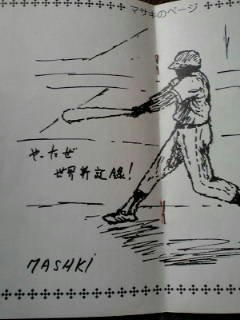 マサキのページ
やったぜ
世界新記録!
MASHKI